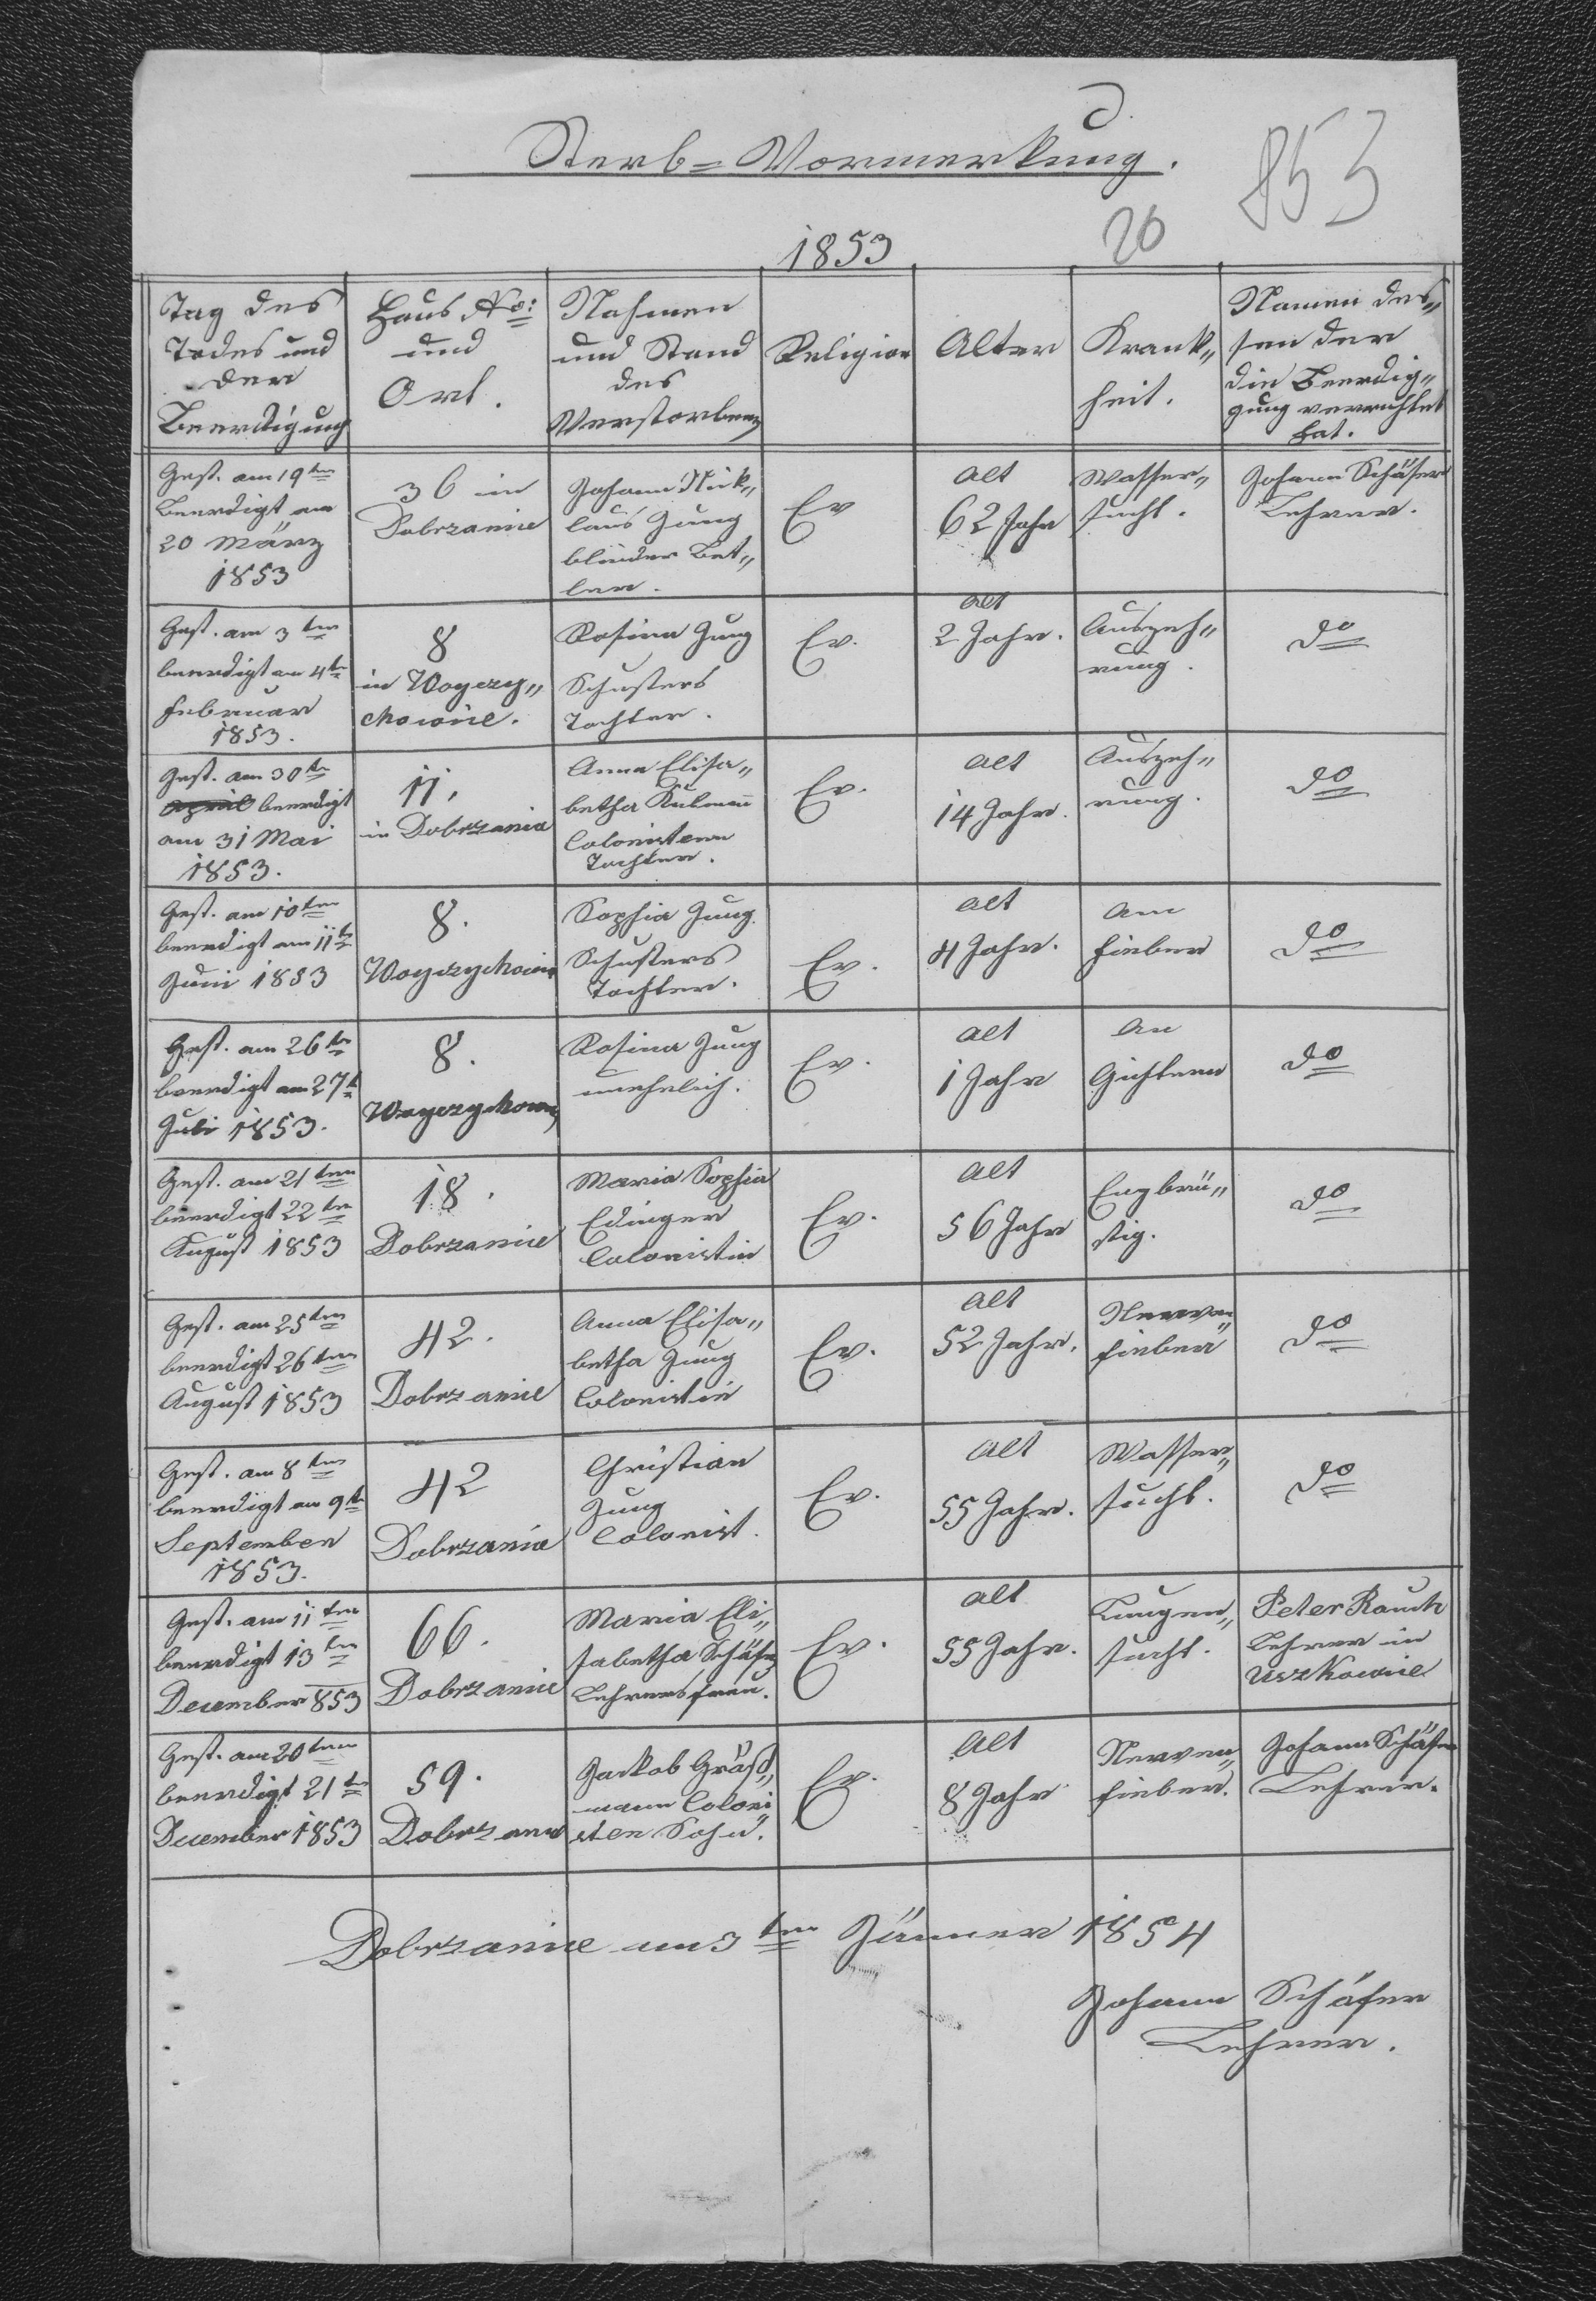 Sterb=Vormerkung.
853
20
1853
Tag des
Todes und
der
Beerdigung
Haus No:
und
Ort.
Nahmen
und Stand
des
Verstorbenen
Religion
Alter
Krank„
heit.
Namen des„
sen der
die Beerdig„
gung verrichtet
hat.
Gest. am 19ten
Beerdigt am
20 März
1853
36 in
Dobrzanice
Johann Nick„
laus Jung
blinder Bet„
ler.
Ev
alt
62 Jahr
Wasser„
sucht.
Johann Schäfer
Lehrer.
Gest. am 3ten
beerdigt am 4te
Februar
1853.
8
in Woyczy„
chowice.
Rosina Jung
Schusters
Tochter.
Ev.
alt
2 Jahr.
Auszeh„
rung.
do
Gest. am 30te
April beerdigt
am 31 Mai
1853.
11.
in Dobrzanica
Anna Elisa„
betha
Colonisten
Tochter.
Ev.
alt
14 Jahr.
Auszeh„
rung.
do
Gest. am 10ten
beerdigt am 11te
Juni 1853
8.
Woyczychowice
Sophia Jung
Schusters
Tochter.
Ev.
alt
4 Jahr.
am
Fieber
do
Gest. am 26te
beerdigt am 27te
Juli 1853.
8.
Woyczychowi
Rosina Jung
unehelich.
Ev.
alt
1 Jahr
an
Gichtern
do
Gest. am 21ten
beerdigt 22ten
August 1853
18.
Dobrzanice
Maria Sophia
Edinger
Colonistin
Ev.
alt
56 Jahr
Engbrü„
stig.
do
Gest. am 25ten
beerdigt 26ten
August 1853
42.
Dobrzanice
Anna Elisa„
betha Jung
Colonistin
Ev.
alt
52 Jahr.
Nerven„
fieber
do
Gest. am 8ten
beerdigt am 9te
September
1853.
42
Dobrzanica
Christian
Jung
Colonist.
Ev.
alt
55 Jahr.
Wasser„
sucht.
do
Gest. am 11ten
beerdigt 13ten
December 853
66.
Dobrzanice
Maria Eli„
sabetha Schäfer
Lehrersfrau.
Ev.
alt
55 Jahr.
Lungen„
sucht.
Peter Rauch
Lehrer in
Uszkowice
Gest. am 20ten
beerdigt 21te
December 1853
59.
Dobrzanice
Jackob Gräß„
mann Coloni„
sten Sohn.
Ev.
alt
8 Jahr
Nerven„
fieber.
Johann Schäfer
Lehrer.
Dobrzanice am 3ten Jänner 1854
Johann Schäfer
Lehrer.